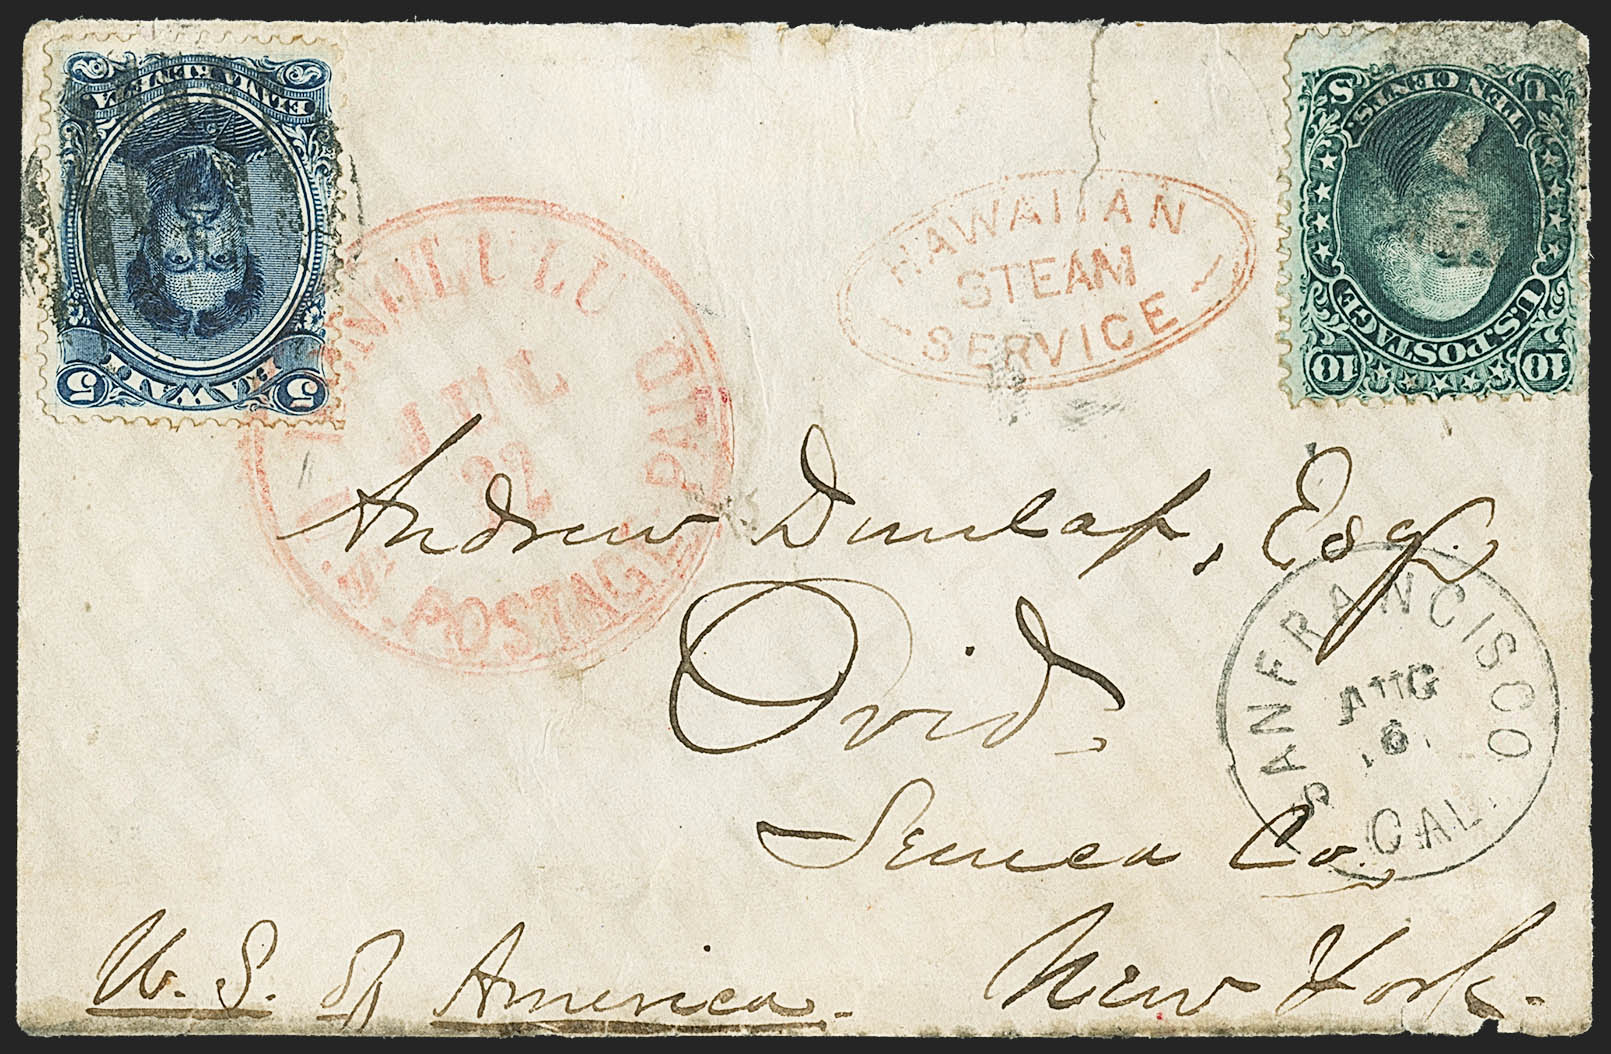 5 HAWAII 5
ELIMA KENETA
10 U.S. POSTAGE 10
TEN CENTS.
U S
HAWAIIAN
STEAM
SERVICE
HONOLULU
JUL
22
U.S. POSTAGE PAID
Andrew Dunlap, Esq.,
Ovid.
Seneca Co.
New York.
U. S. of America.
SAN FRANCISCO
AUG
6
CAL.